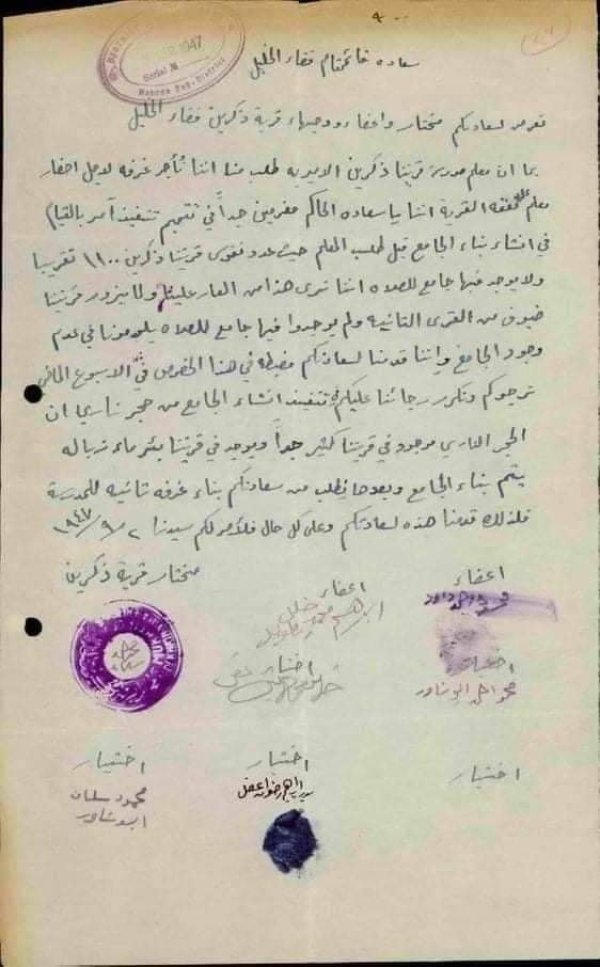 1947
Serial №
Hebron Sub-District
سعادة قائمقام قضاء الخليل
نعرض لسعادتكم مختار واعضاء ووجهاء قرية ذكرين قضاء الخليل
بما ان معلم مدرسة قريتنا ذكرين الاميريه طلب منا اننا نأجر غرفه لاجل احضار
معلم القرية اننا يا سعادة الحاكم مغرمين جداً في تتميم تنفيذ أمر بالقيام
في انشاء بناء الجامع قبل طلب المعلم حيث عدد نفوس قريتنا ذكرين ١١٠٠ تقريبا
ولا يوجد فيها جامع للصلاه اننا نرى هذا من العار علينا ولما يزور قريتنا
ضيوف من القرى الثانيه ولم يوجدوا فيها جامع للصلاه يلومونا في عدم
وجود الجامع واننا قدمنا لسعادتكم مضبطه في هذا الخصوص في الاسبوع الماضي
نرجوكم ونكرر رجائنا عليكم تنفيذ انشاء الجامع من حجر ناري بما ان
الحجر الناري موجود في قريتنا كثير جداً ويوجد في قريتنا بئر ماء
يتم بناء الجامع وبعدها نطلب من سعادتكم بناء غرفه ثانيه للمدرسة
فلذلك قدمنا هذه لسعادتكم وعلى كل حال فلأمر لكم سيدنا ٢/٩/١٩٤٧
مختار قرية ذكرين
اعضاء
اعضاء
اختيار
اختيار
اختيار
اختيار
اختيار
محمود سلمان
ابو شاور